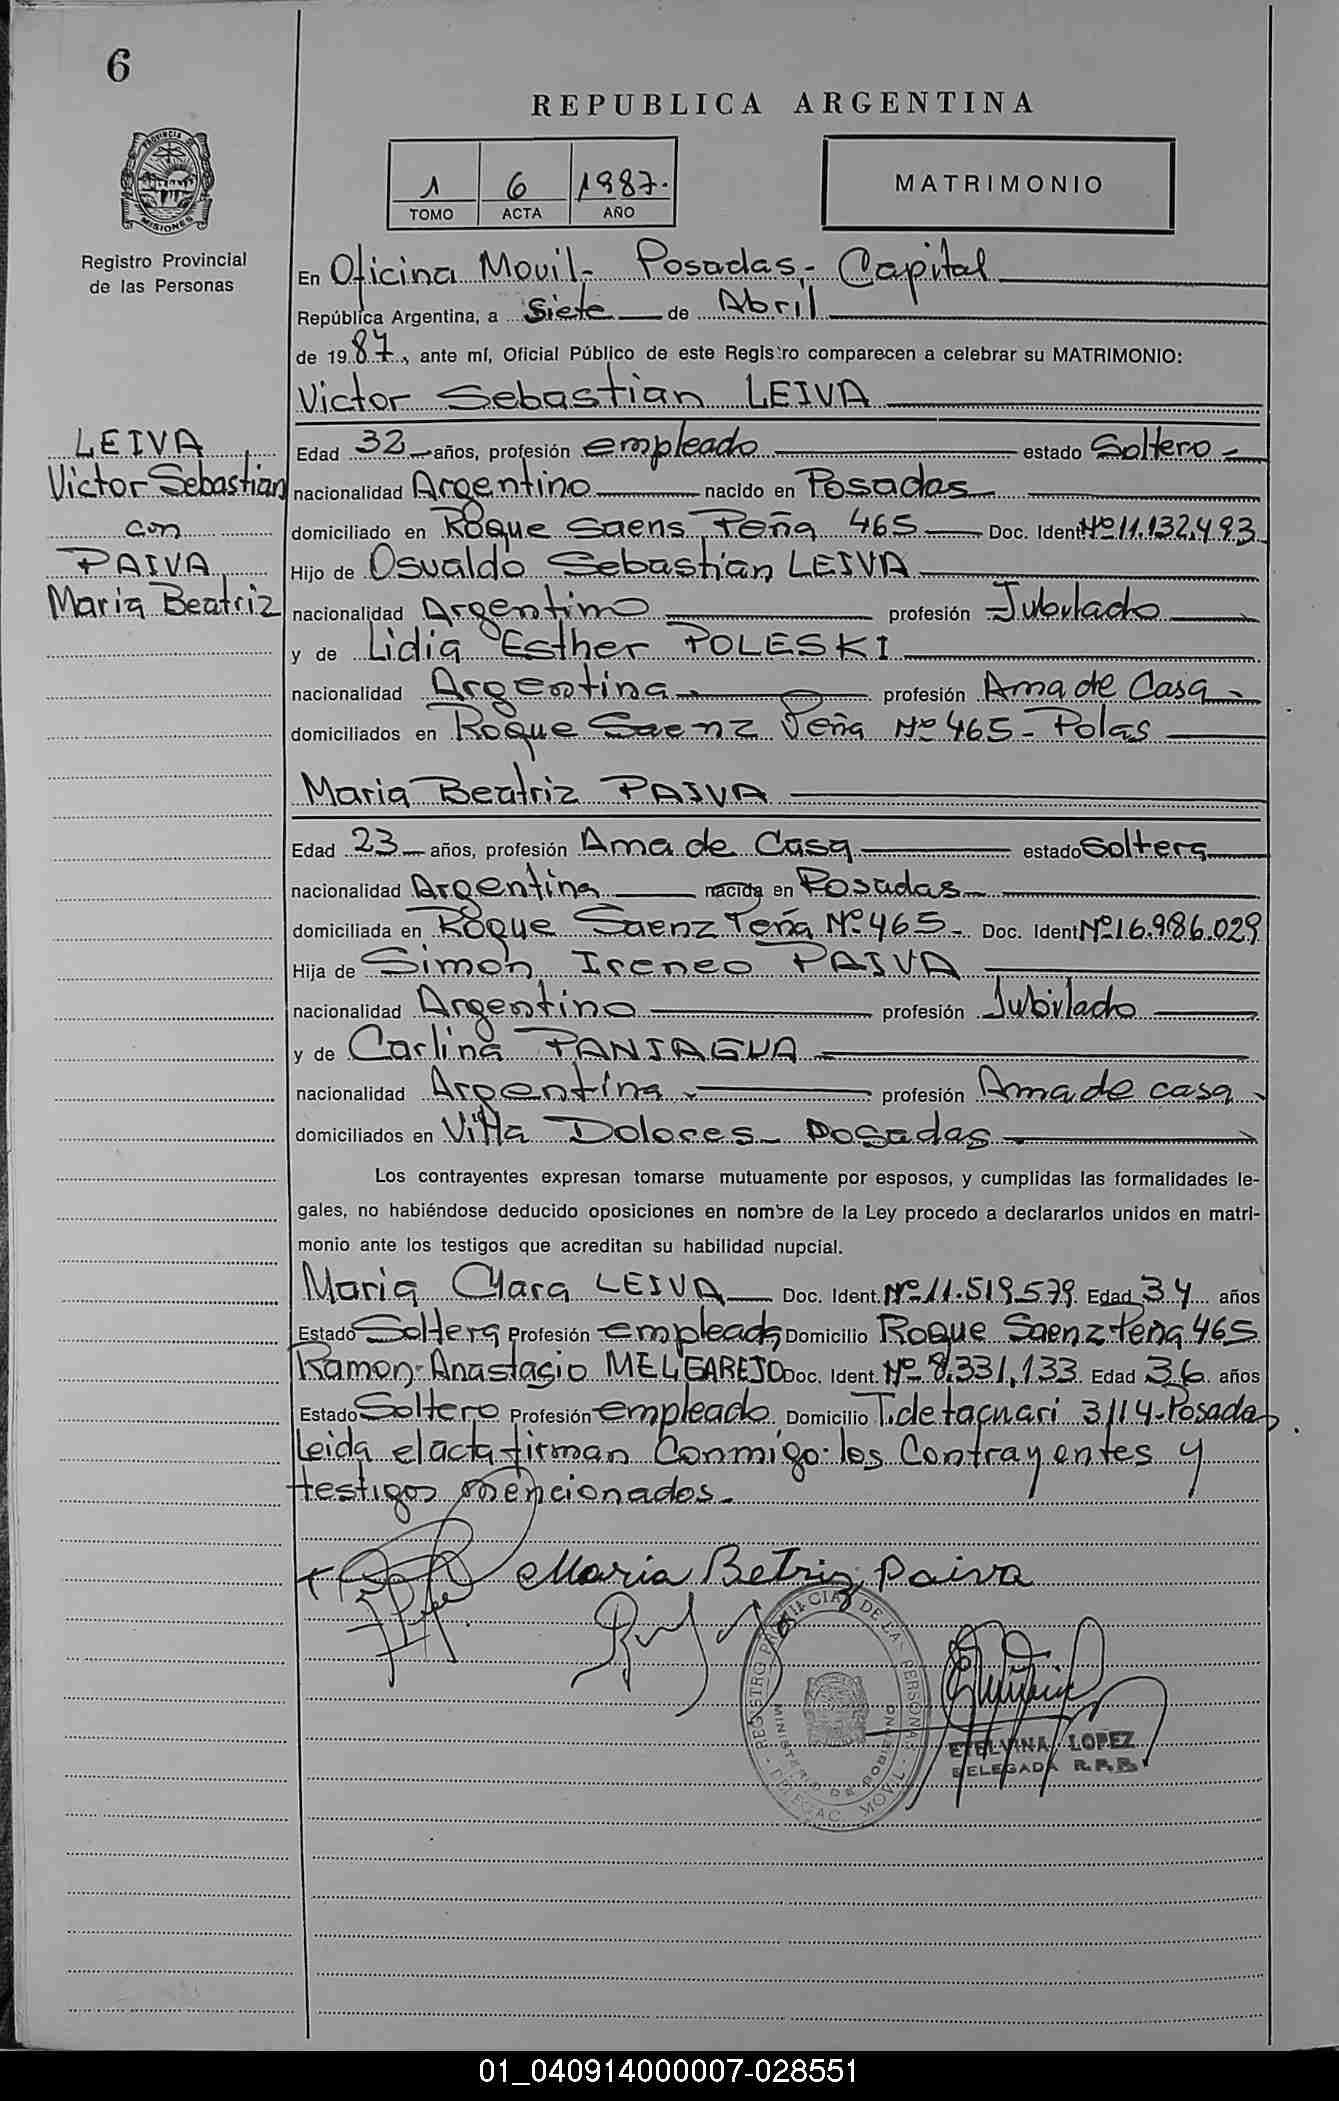 6
REPUBLICA ARGENTINA
PROVINCIA
MISIONES
1 6 1987.
TOMO ACTA AÑO
MATRIMONIO
Registro Provincial
de las Personas
En Oficina Movil- Posadas,- Capital
República Argentina, a Siete de Abril
de 1987, ante mí, Oficial Público de este Registro comparecen a celebrar su MATRIMONIO:
Victor Sebastian LEIVA
LEIVA
Victor Sebastian
con
PAIVA
Maria Beatriz
Edad 32 años, profesión empleado estado Soltero-
nacionalidad Argentino nacido en Posadas
domiciliado en Roque Saens Peña 465 Doc. Ident. Nº 11.132.493
Hijo de Osvaldo Sebastian LEIVA
nacionalidad Argentino profesión Jubilado
y de Lidia Esther POLESKI
nacionalidad Argentina profesión Ama de Casa-
domiciliados en Roque Saenz Peña Nº 465- Pdas
Maria Beatriz PAIVA
Edad 23 años, profesión Ama de Casa estado Soltera
nacionalidad Argentina nacida en Posadas
domiciliada en Roque Saenz Peña Nº 465- Doc. Ident. Nº 16.986.029
Hija de Simon Ireneo PAIVA
nacionalidad Argentino profesión Jubilado
y de Carlina PANIAGUA
nacionalidad Argentina profesión Ama de casa
domiciliados en Villa Dolores- Posadas
Los contrayentes expresan tomarse mutuamente por esposos, y cumplidas las formalidades le-
gales, no habiéndose deducido oposiciones en nombre de la Ley procedo a declararlos unidos en matri-
monio ante los testigos que acreditan su habilidad nupcial.
Maria Clara LEIVA Doc. Ident. Nº 11.519.579 Edad 34 años
Estado Soltera Profesión empleada Domicilio Roque Saenz Peña 465
Ramon Anastasio MELGAREJO Doc. Ident. Nº 8.331.133 Edad 36 años
Estado Soltero Profesión empleado Domicilio T. de tacuari 3114-Posadas.
Leida el acta firman Conmigo los Contrayentes y
testigos mencionados-
Maria Betriz Paiva
REGISTRO PROVINCIAL DE LAS PERSONAS
MINISTERIO DE GOBIERNO
DELEGAC. MOVIL
ETELVINA LOPEZ
DELEGADA R.P.P.
01_040914000007-028551